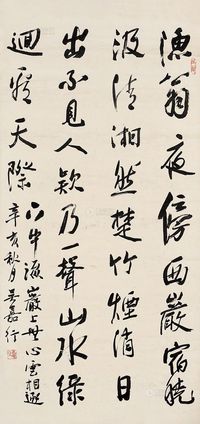 漁翁夜傍西巖宿曉
汲清湘然楚竹煙消日
出不見人欸乃一聲山水綠
迴看天際下中流巖上無心雲相逐
辛亥秋月吳嘉行